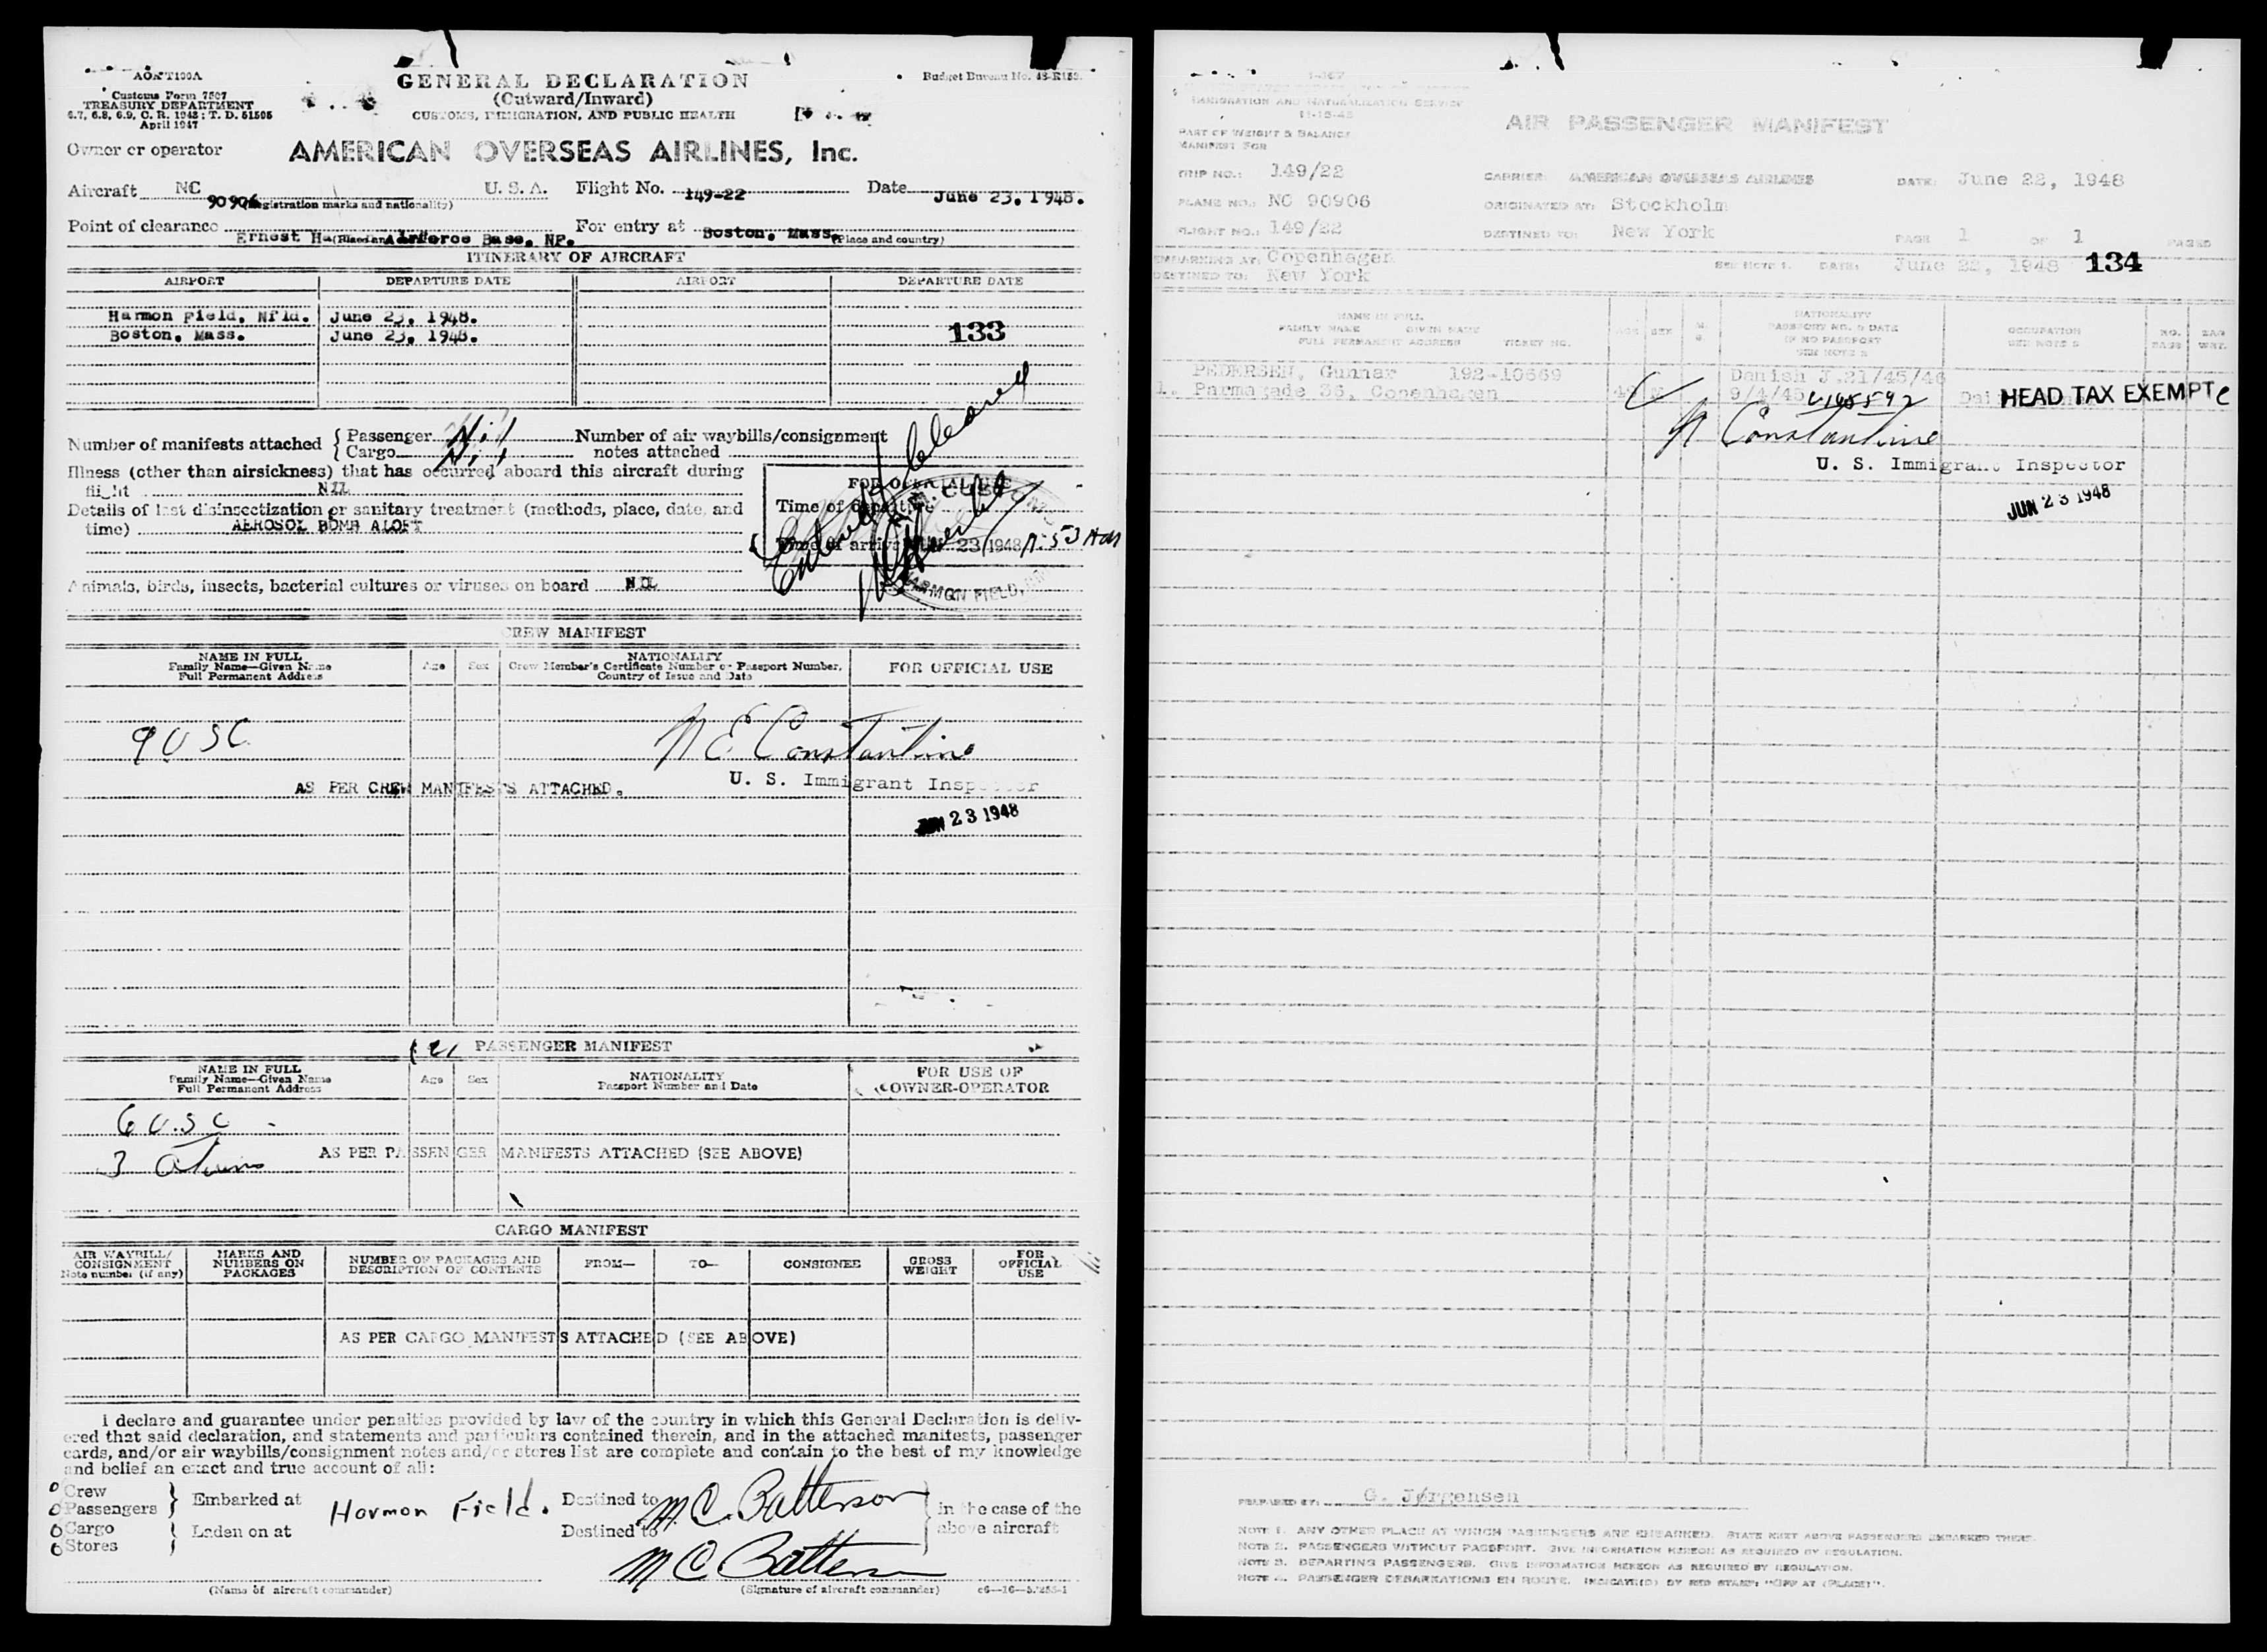 AOA T100A
Customs Form 7507
TREASURY DEPARTMENT
6.7, 6.8, 6.9, C. R. 1943 : T. D. 51505
April 1947
GENERAL DECLARATION
(Outward/Inward)
CUSTOMS, IMMIGRATION, AND PUBLIC HEALTH
Budget Bureau No.
Owner or operator AMERICAN OVERSEAS AIRLINES, Inc.
Aircraft NC 90906 U. S. A. Flight No. 149-22 Date June 23, 1948.
(Registration marks and nationality)
Point of clearance Ernest Force Base, NF. For entry at Boston, Mass.
(Place and country)
ITINERARY OF AIRCRAFT
AIRPORT DEPARTURE DATE AIRPORT DEPARTURE DATE
Harmon Field, Nfld. June 23, 1948.
Boston, Mass. June 23, 1948.
133
Number of manifests attached { Passenger Nil Number of air waybills/consignment
Cargo Nil notes attached
Illness (other than airsickness) that has occurred aboard this aircraft during
flight NIL
Details of last disinsectization or sanitary treatment (methods, place, date, and
time) AEROSOL BOMB ALOFT
FOR OFFICIAL USE
Time of departure
Time of arrival 23 1948
HARMON FIELD,
Animals, birds, insects, bacterial cultures or viruses on board NIL
CREW MANIFEST
NAME IN FULL
Family Name—Given Name
Full Permanent Address
Age Sex
NATIONALITY
Crew Member's Certificate Number or Passport Number,
Country of Issue and Date
FOR OFFICIAL USE
9 USC
N E Constantine
U. S. Immigrant Inspector
AS PER CREW MANIFESTS ATTACHED.
JUN 23 1948
PASSENGER MANIFEST
NAME IN FULL
Family Name—Given Name
Full Permanent Address
Age Sex
NATIONALITY
Passport Number and Date
FOR USE OF
OWNER-OPERATOR
6 U.S C
3 Aliens
AS PER PASSENGER MANIFESTS ATTACHED (SEE ABOVE)
CARGO MANIFEST
AIR WAYBILL/
CONSIGNMENT
Note number (if any)
MARKS AND
NUMBERS ON
PACKAGES
NUMBER OF PACKAGES AND
DESCRIPTION OF CONTENTS
FROM— TO— CONSIGNEE
GROSS
WEIGHT
FOR
OFFICIAL
USE
AS PER CARGO MANIFESTS ATTACHED (SEE ABOVE)
I declare and guarantee under penalties provided by law of the country in which this General Declaration is deliv-
ered that said declaration, and statements and particulars contained therein, and in the attached manifests, passenger
cards, and/or air waybills/consignment notes and/or stores list are complete and contain to the best of my knowledge
and belief an exact and true account of all:
Crew
Passengers } Embarked at Harmon Field. Destined to
Cargo
Stores } Laden on at Destined to
in the case of the
above aircraft
M. C. Batterson
M C Batterson
(Name of aircraft commander) (Signature of aircraft commander)
IMMIGRATION AND NATURALIZATION SERVICE
PART OF WEIGHT & BALANCE
MANIFEST FOR
AIR PASSENGER MANIFEST
TRIP NO.: 149/22 CARRIER: AMERICAN OVERSEAS AIRLINES DATE: June 22, 1948
PLANE NO.: NC 90906 ORIGINATED AT: Stockholm
FLIGHT NO.: 149/22 DESTINED TO: New York PAGE 1 OF 1 PAGES
EMBARKING AT: Copenhagen SEE NOTE 1. DATE: June 22, 1948 134
DESTINED TO: New York
NAME IN FULL
FAMILY NAME GIVEN NAME
FULL PERMANENT ADDRESS TICKET NO.
AGE SEX M. S.
NATIONALITY
PASSPORT NO. & DATE
IF NO PASSPORT
SEE NOTE 2
OCCUPATION
SEE NOTE 3
NO. BAGS
BAG WGT.
PEDERSEN, Gunnar 192-10669 Danish J.21/45/46
1. Parmagade 36, Copenhagen 9/4/45
HEAD TAX EXEMPT
N Constantine
U. S. Immigrant Inspector
JUN 23 1948
PREPARED BY: G. Jørgensen
NOTE 1. ANY OTHER PLACE AT WHICH PASSENGERS ARE EMBARKED. STATE NEXT ABOVE PASSENGERS EMBARKED THERE.
NOTE 2. PASSENGERS WITHOUT PASSPORT. GIVE INFORMATION HEREON AS REQUIRED BY REGULATION.
NOTE 3. DEPARTING PASSENGERS. GIVE INFORMATION HEREON AS REQUIRED BY REGULATION.
NOTE 4. PASSENGER DEBARKATIONS EN ROUTE. INDICATE(D) BY RED STAMP: "OFF AT (PLACE)".